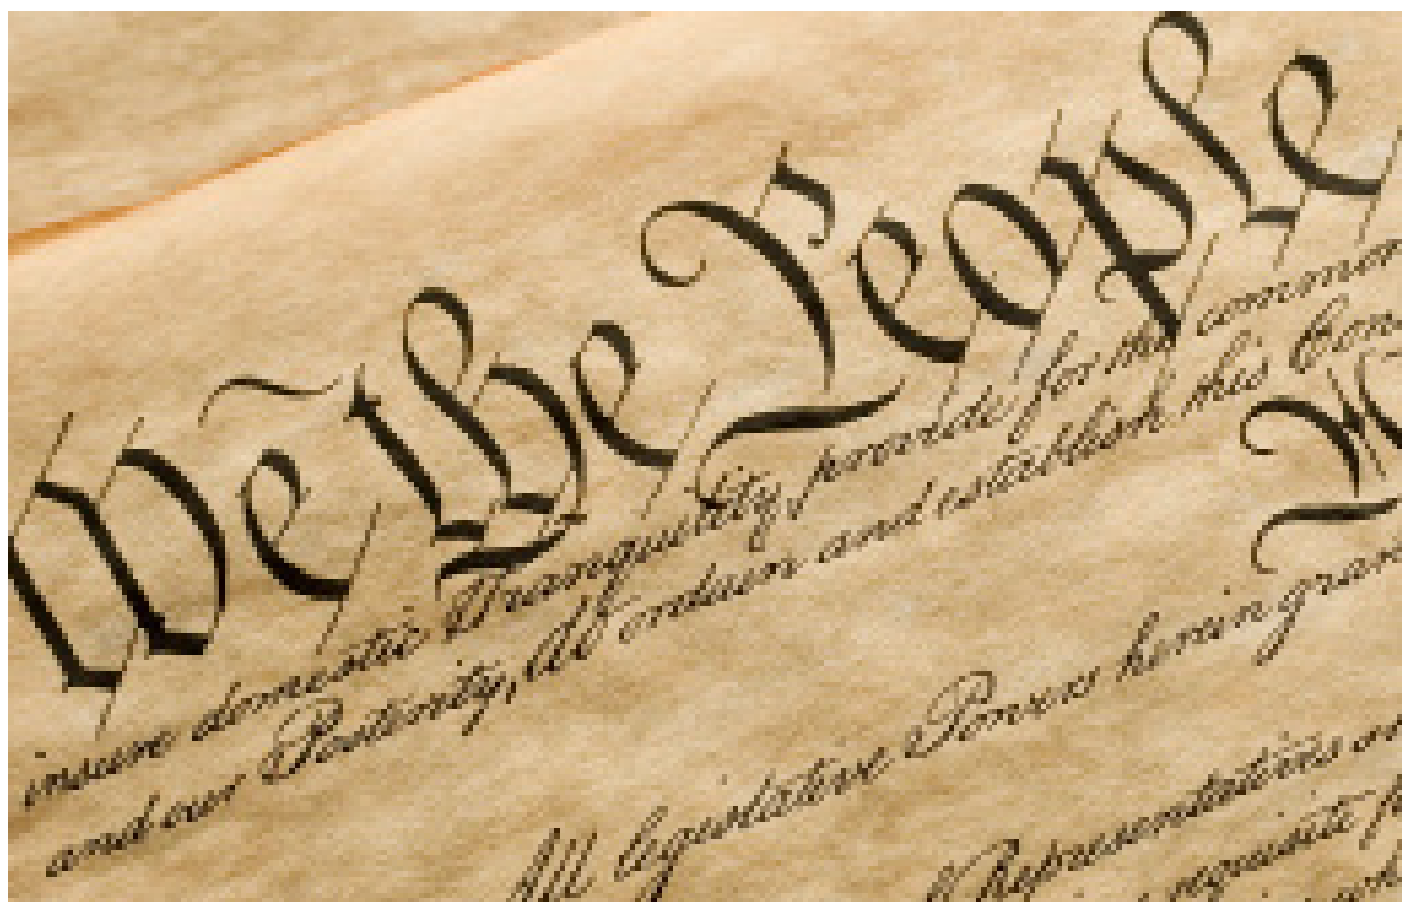 We the People
insure domestic Tranquility, provide for the common
and our Posterity, do ordain and establish this Con
All legislative Powers herein gran
Representatives
requisite